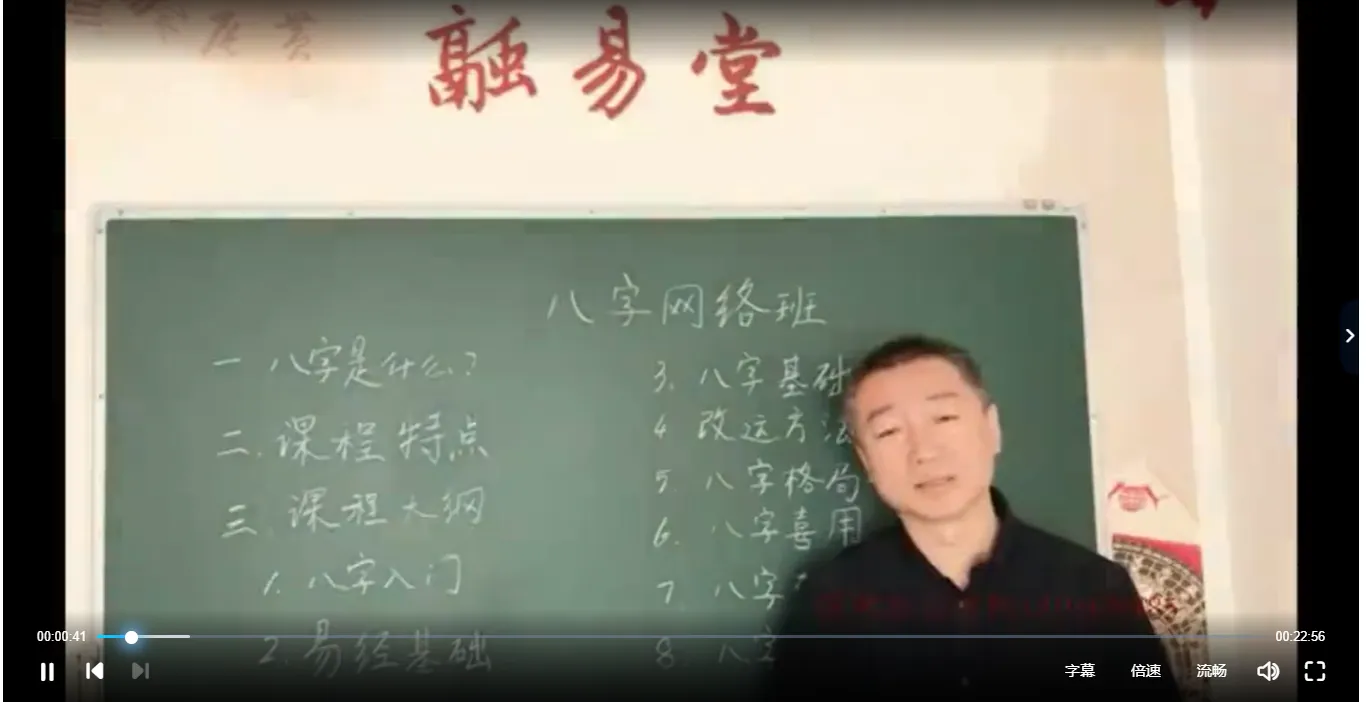 融易堂
八字网络班
一 八字是什么?
二. 课程特点
三. 课程大纲
1. 八字入门
2. 易经基础
3. 八字基础
4 改运方法
5. 八字格局
6. 八字喜用
7. 八字
8. 八字
00:00:41
00:22:56
字幕
倍速
流畅